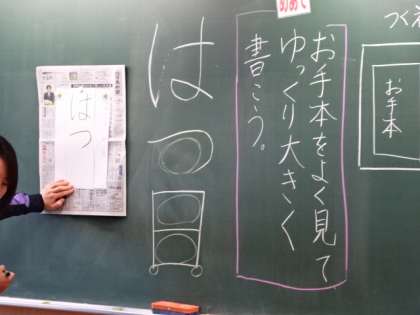 つくえ
お手本
めあて
お手本をよく見て
ゆっくり大きく
書こう。
はつ日
はつ